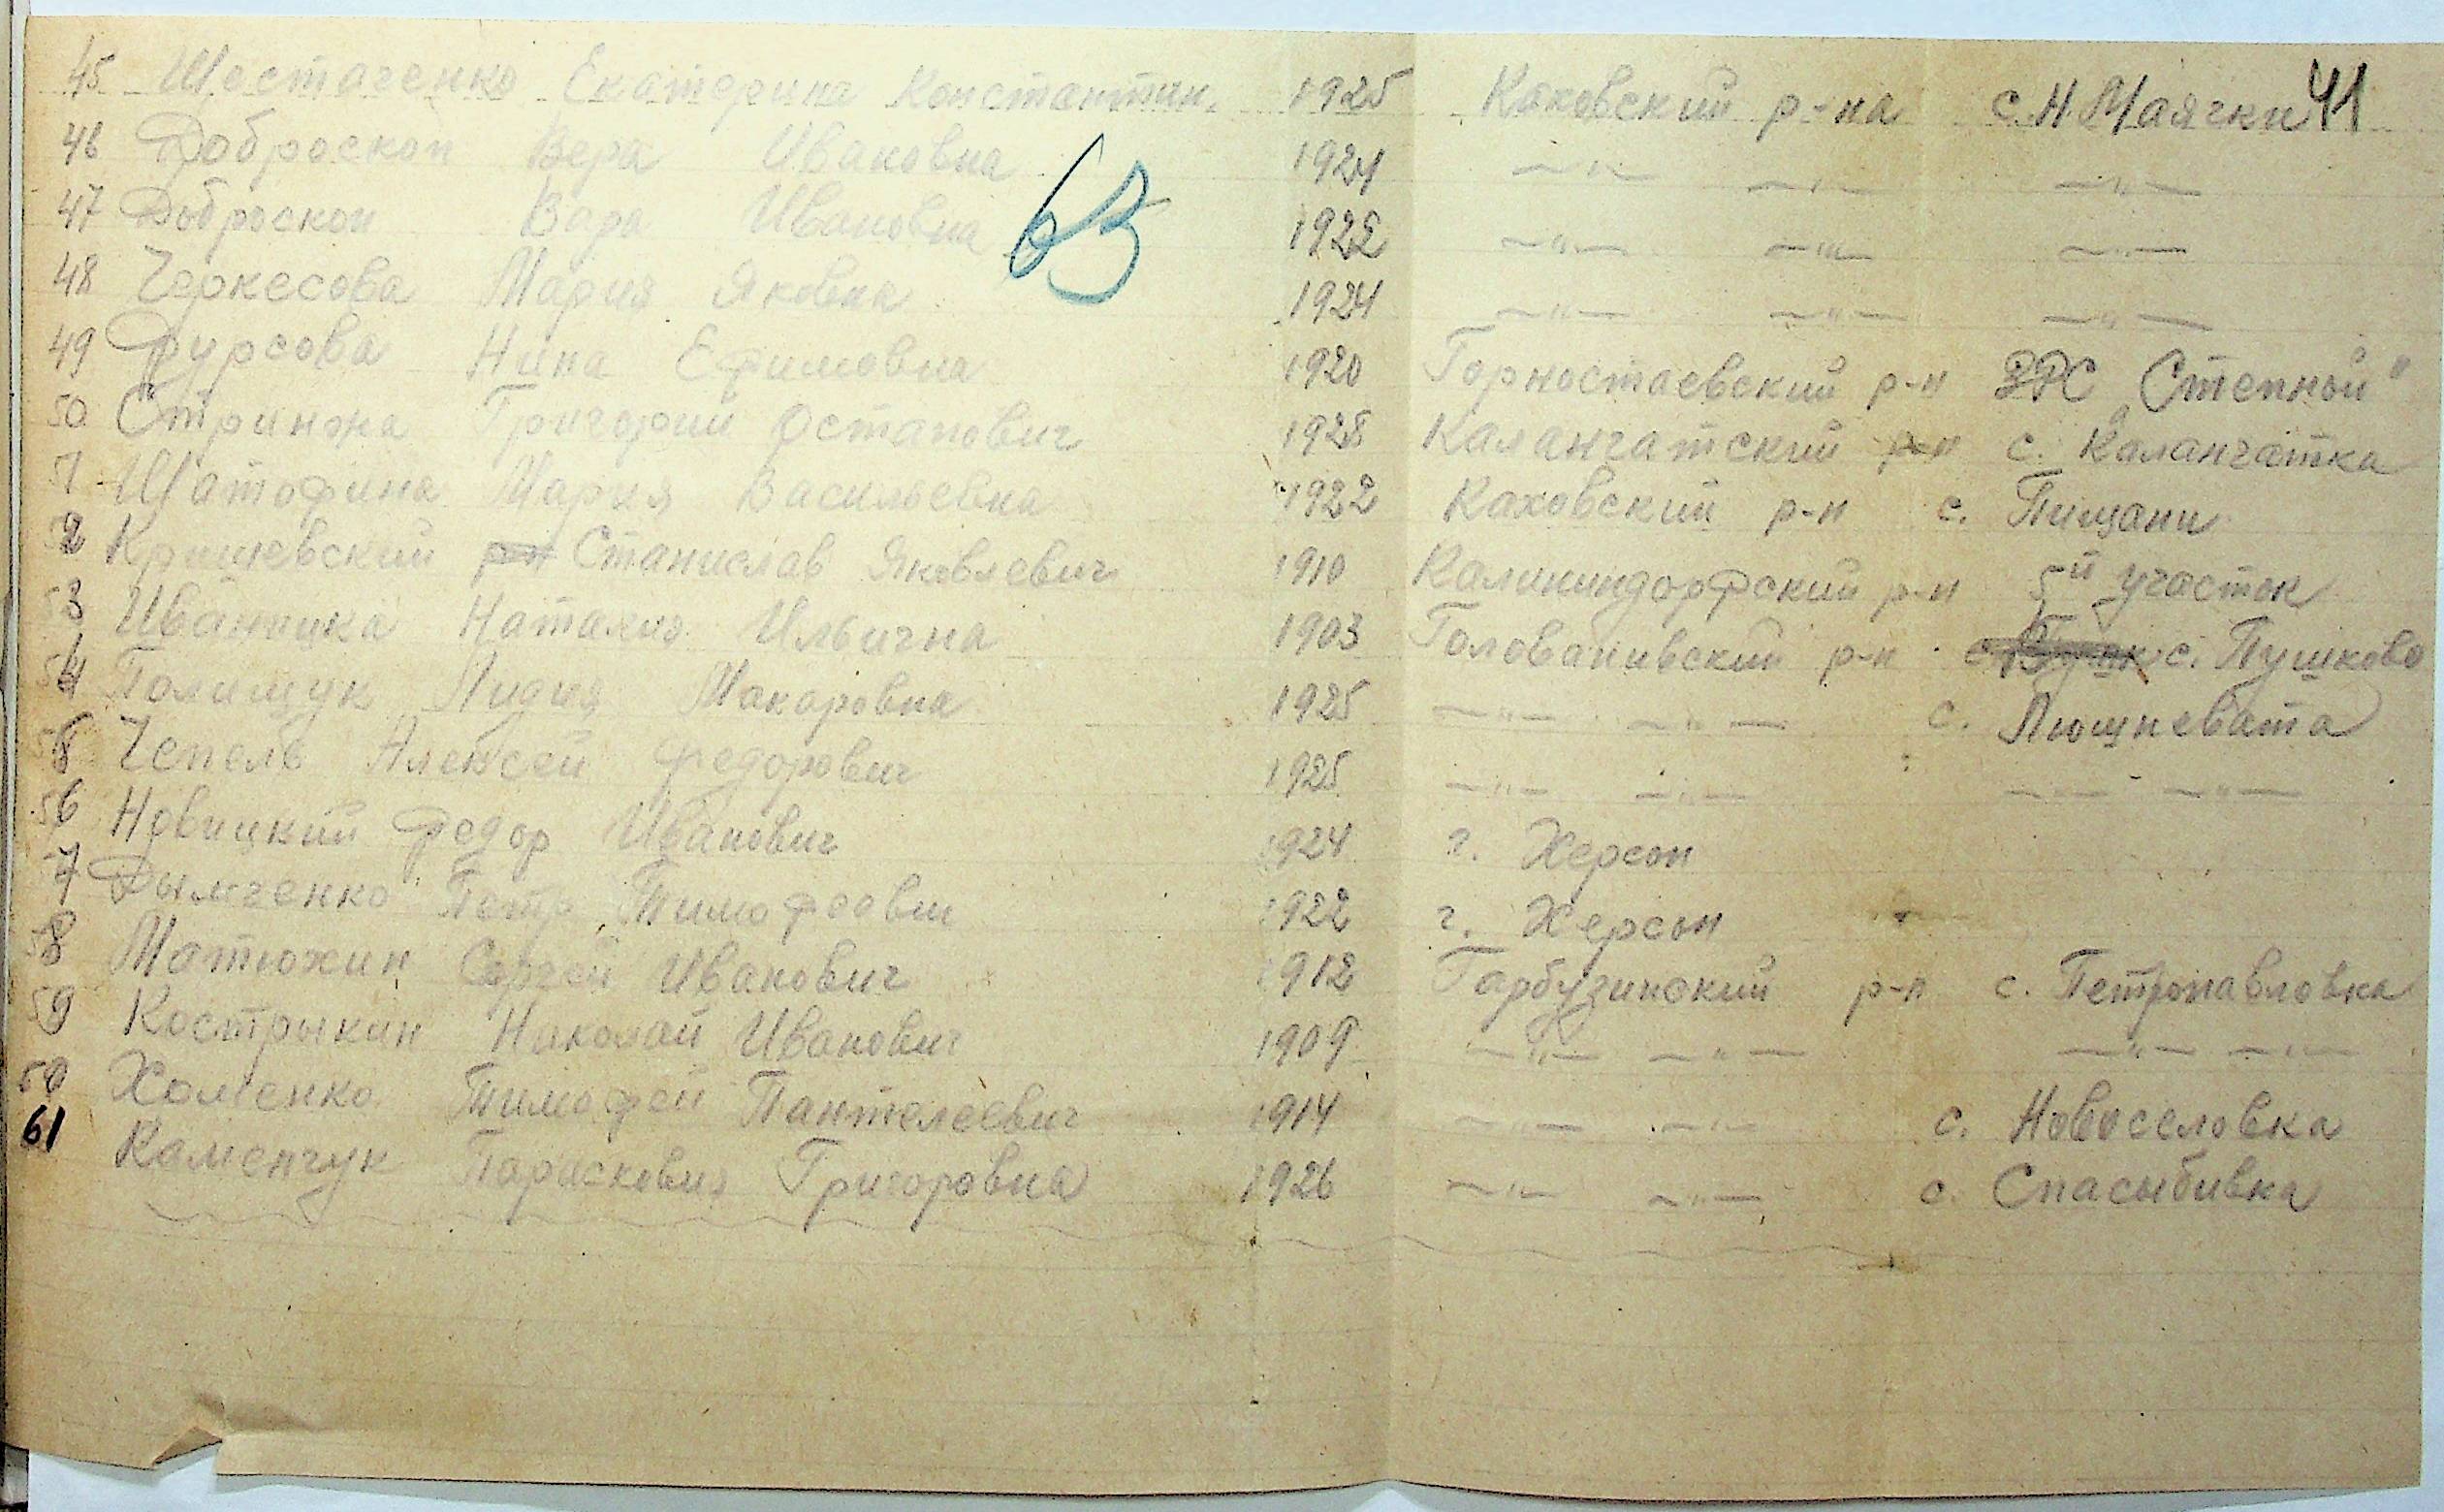 45 Шостаченко Екатерина Константин. 1925 Каховский р-на с. Н. Маячки 41
46 Доброскок Вера Ивановна 1924 —"— —"— —"—
47 Доброскок Вара Ивановна 1922 —"— —"— —"—
63
48 Черкесова Мария Яковна 1924 —"— —"— —"—
49 Фурсова Нина Ефимовна 1920 Горностаевский р-н ЗРС „Степной"
50 Стринжа Григорий Остапович 1928 Каланчатский р-н с. Каланчатка
1 Шатофина Мария Васильевна 1922 Каховский р-н с. Пищани
52 Кришевский Станислав Яковлевич 1910 Калининдорфский р-н 5й участок
53 Иваницка Наталия Ильична 1903 Голованивский р-н с. Пушково
54 Полищук Лидия Макаровна 1925 —"— —"— с. Лющневата
55 Чепель Алексей Федорович 1925 —"— —"— —"— —"—
56 Новицкий Федор Иванович 1924 г. Херсон
57 Дымченко Петр Тимофеевич 1922 г. Херсон
58 Матюхин Сергей Иванович 1912 Гарбузинский р-н с. Петропавловка
59 Кострыкин Николай Иванович 1909 —"— —"— —"— —"—
60 Хоменко Тимофей Пантелеевич 1914 —"— —"— с. Новоселовка
61 Каменчук Парасковия Григоровна 1926 —"— —"— с. Спасыбивка